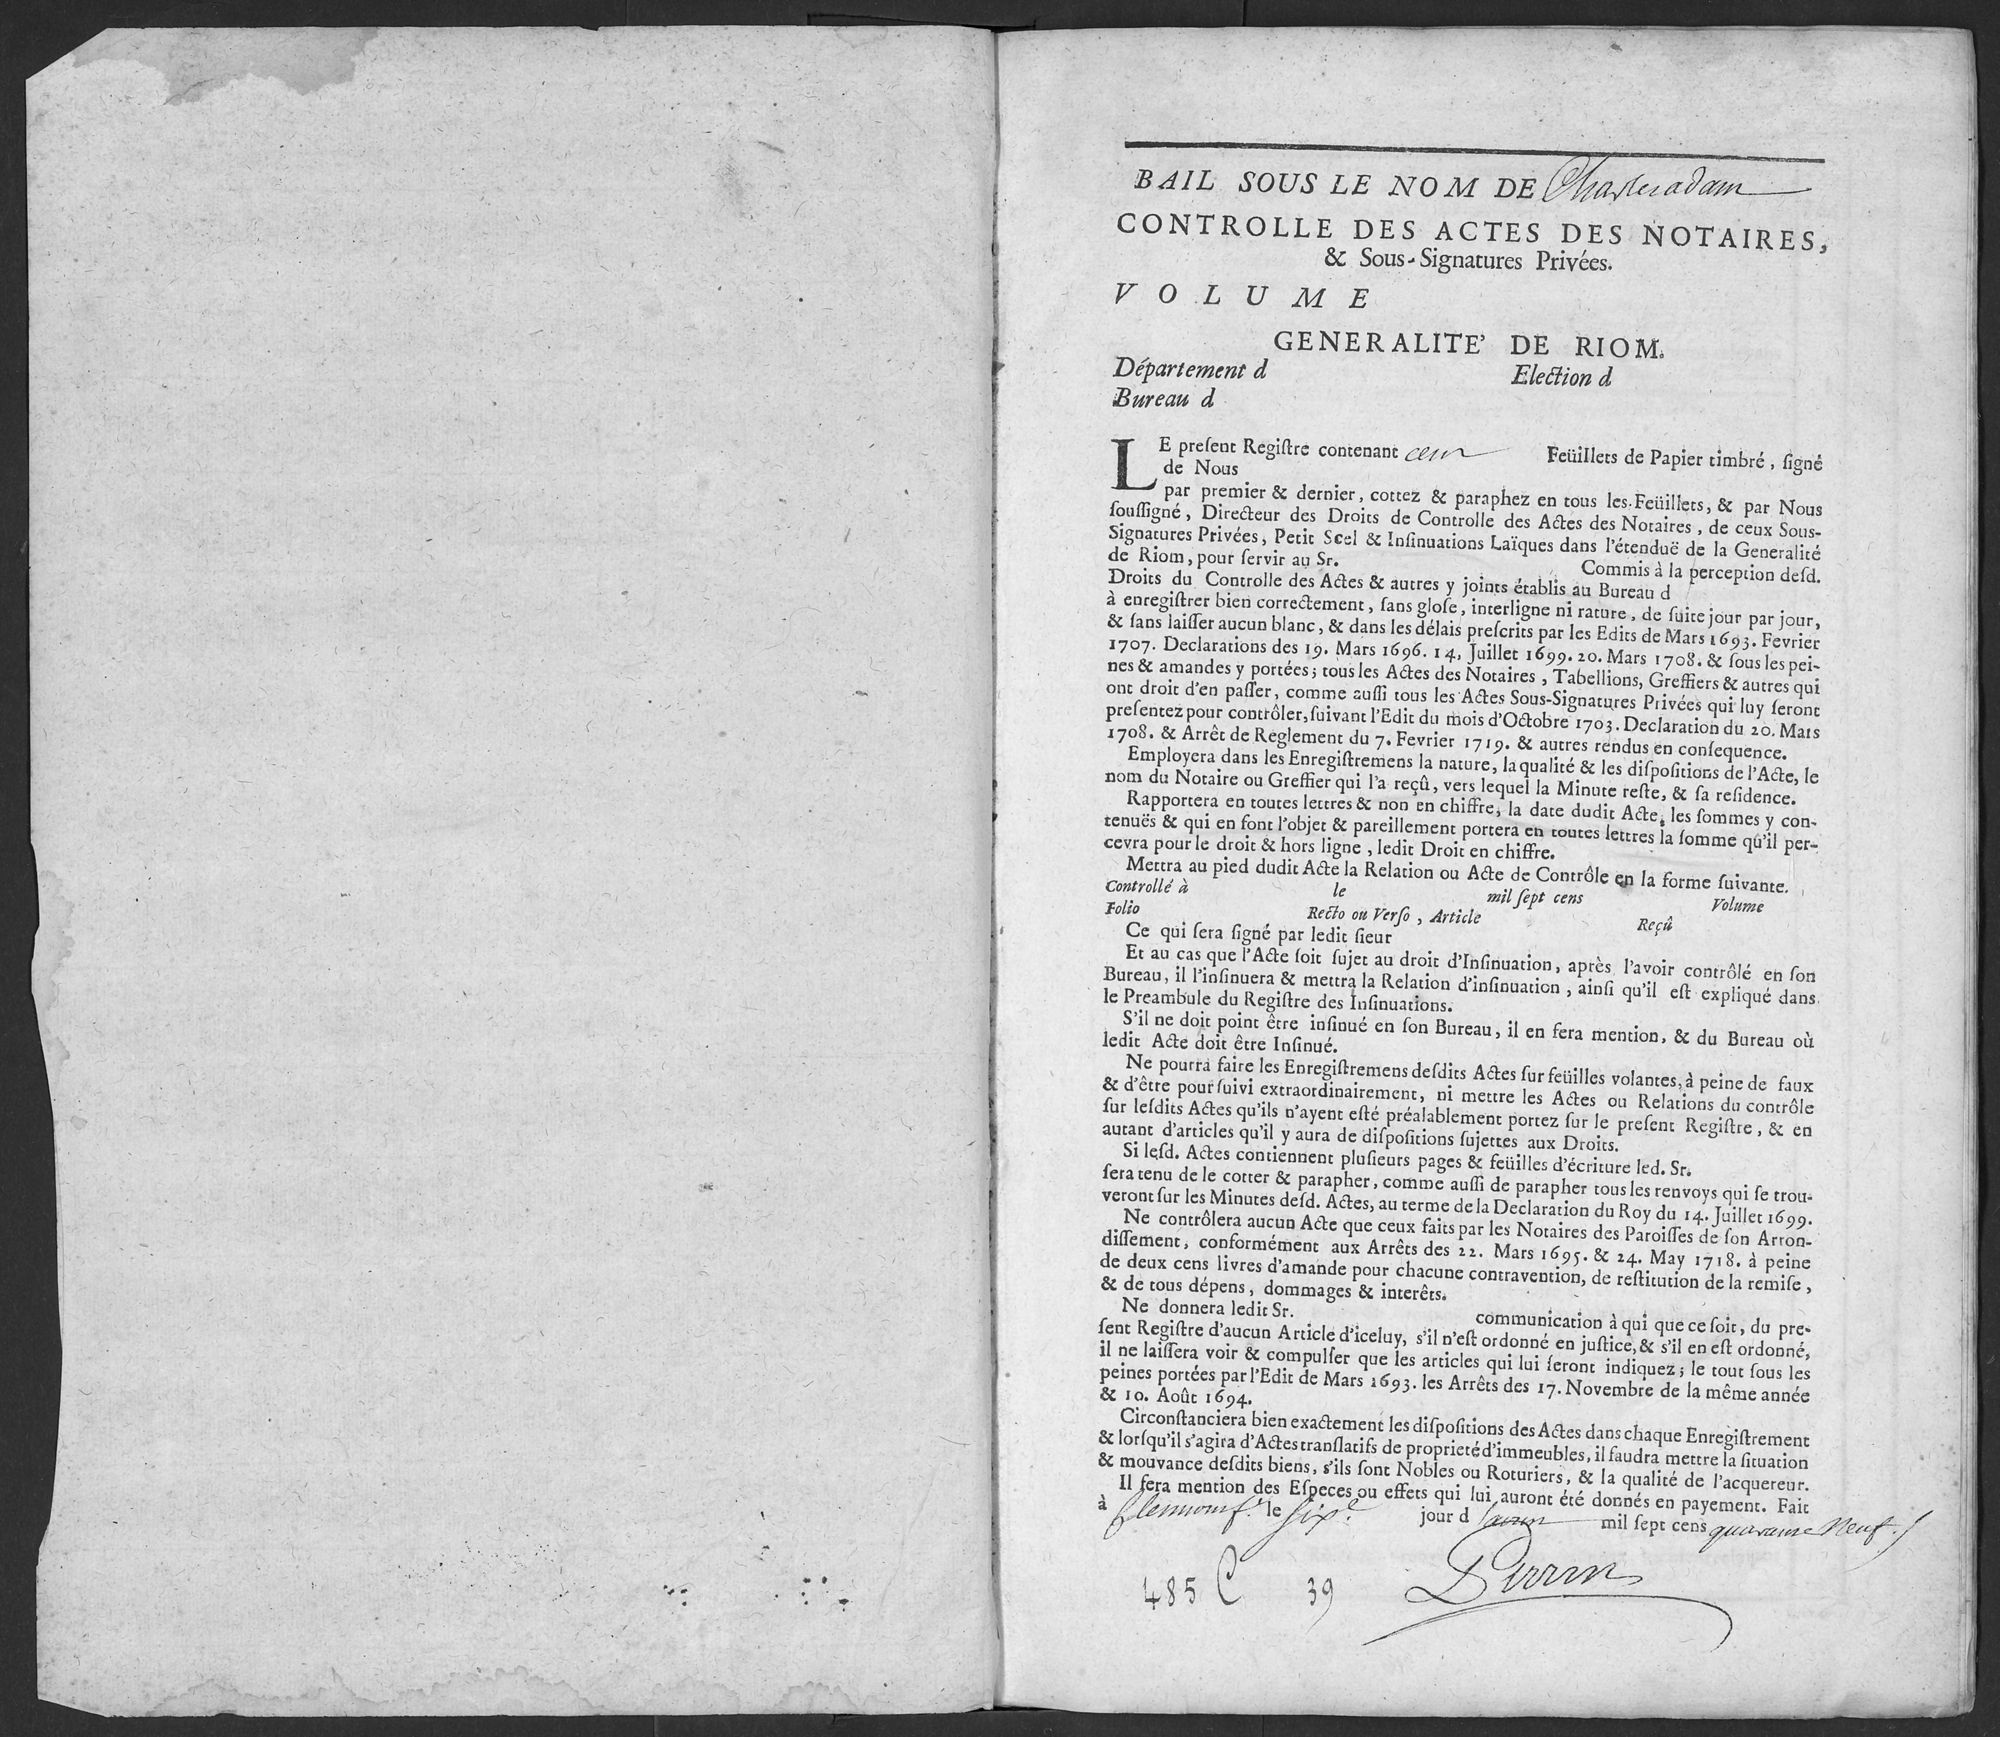 BAIL SOUS LE NOM DE Charles adam
CONTROLLE DES ACTES DES NOTAIRES,
& Sous-Signatures Privées.
VOLUME
GENERALITE' DE RIOM.
Département d Election d
Bureau d
LE preſent Regiſtre contenant cent Feüillets de Papier timbré, ſigné
de Nous
par premier & dernier, cottez & paraphez en tous les Feüillets, & par Nous
ſouſſigné, Directeur des Droits de Controlle des Actes des Notaires, de ceux Sous-
Signatures Privées, Petit Scel & Inſinuations Laïques dans l'étenduë de la Generalité
de Riom, pour ſervir au Sr. Commis à la perception deſd.
Droits du Controlle des Actes & autres y joints établis au Bureau d
à enregiſtrer bien correctement, ſans gloſe, interligne ni rature, de ſuite jour par jour,
& ſans laiſſer aucun blanc, & dans les délais preſcrits par les Edits de Mars 1693. Fevrier
1707. Declarations des 19. Mars 1696. 14. Juillet 1699. 20. Mars 1708. & ſous les pei-
nes & amandes y portées; tous les Actes des Notaires, Tabellions, Greffiers & autres qui
ont droit d'en paſſer, comme auſſi tous les Actes Sous-Signatures Privées qui luy ſeront
preſentez pour contrôler, ſuivant l'Edit du mois d'Octobre 1703. Declaration du 20. Mars
1708. & Arrêt de Reglement du 7. Fevrier 1719. & autres rendus en conſequence.
Employera dans les Enregiſtremens la nature, la qualité & les diſpoſitions de l'Acte, le
nom du Notaire ou Greffier qui l'a reçû, vers lequel la Minute reſte, & ſa reſidence.
Rapportera en toutes lettres & non en chiffre, la date dudit Acte, les ſommes y con-
tenuës & qui en font l'objet & pareillement portera en toutes lettres la ſomme qu'il per-
cevra pour le droit & hors ligne, ledit Droit en chiffre.
Mettra au pied dudit Acte la Relation ou Acte de Contrôle en la forme ſuivante.
Controllé à le mil ſept cens Volume
Folio Recto ou Verſo, Article Reçû
Ce qui ſera ſigné par ledit ſieur
Et au cas que l'Acte ſoit ſujet au droit d'Inſinuation, après l'avoir contrôlé en ſon
Bureau, il l'inſinuera & mettra la Relation d'inſinuation, ainſi qu'il eſt expliqué dans
le Preambule du Regiſtre des Inſinuations.
S'il ne doit point être inſinué en ſon Bureau, il en fera mention, & du Bureau où
ledit Acte doit être Inſinué.
Ne pourra faire les Enregiſtremens deſdits Actes ſur feüilles volantes, à peine de faux
& d'être pourſuivi extraordinairement, ni mettre les Actes ou Relations du contrôle
ſur leſdits Actes qu'ils n'ayent eſté préalablement portez ſur le preſent Regiſtre, & en
autant d'articles qu'il y aura de diſpoſitions ſujettes aux Droits.
Si leſd. Actes contiennent pluſieurs pages & feüilles d'écriture led. Sr.
ſera tenu de le cotter & parapher, comme auſſi de parapher tous les renvoys qui ſe trou-
veront ſur les Minutes deſd. Actes, au terme de la Declaration du Roy du 14. Juillet 1699.
Ne contrôlera aucun Acte que ceux faits par les Notaires des Paroiſſes de ſon Arron-
diſſement, conformément aux Arrêts des 22. Mars 1695. & 24. May 1718. à peine
de deux cens livres d'amande pour chacune contravention, de reſtitution de la remiſe,
& de tous dépens, dommages & interêts.
Ne donnera ledit Sr. communication à qui que ce ſoit, du pre-
ſent Regiſtre d'aucun Article d'iceluy, s'il n'eſt ordonné en juſtice, & s'il en eſt ordonné,
il ne laiſſera voir & compulſer que les articles qui lui ſeront indiquez; le tout ſous les
peines portées par l'Edit de Mars 1693. les Arrêts des 17. Novembre de la même année
& 10. Août 1694.
Circonſtanciera bien exactement les diſpoſitions des Actes dans chaque Enregiſtrement
& lorſqu'il s'agira d'Actes tranſlatifs de proprieté d'immeubles, il faudra mettre la ſituation
& mouvance deſdits biens, s'ils ſont Nobles ou Roturiers, & la qualité de l'acquereur.
Il fera mention des Eſpeces ou effets qui lui auront été donnés en payement. Fait
à Clermont f.d le Six.e jour d'avril mil ſept cens quarante Neuf./
485 C 39 Perrin